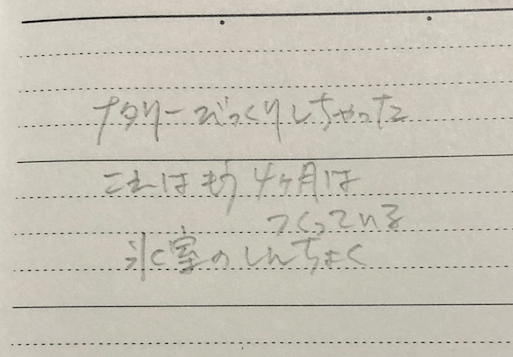 ナタリーびっくりしちゃった
これはもう4ヶ月は
つくっている
氷室のしんちょく